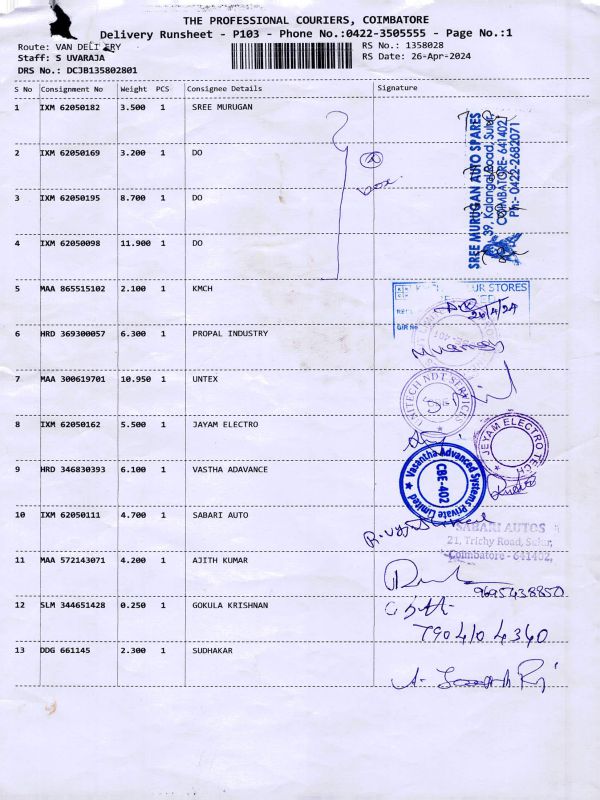 THE PROFESSIONAL COURIERS, COIMBATORE
Delivery Runsheet - P103 - Phone No.:0422-3505555 - Page No.:1
Route: VAN DELIVERY
RS No.: 1358028
Staff: S UVARAJA
RS Date: 26-Apr-2024
DRS No.: DCJB135802801
S No Consignment No Weight PCS Consignee Details Signature
1 IXM 62050182 3.500 1 SREE MURUGAN
2 IXM 62050169 3.200 1 DO
3 IXM 62050195 8.700 1 DO
4 IXM 62050098 11.900 1 DO
SREE MURUGAN AUTO SPARES
39, Kalangal Road, Sulur,
COIMBATORE- 641402
Ph:- 0422-2682071
4
box
5 MAA 865515102 2.100 1 KMCH
STORES
26/4/24
6 HRD 369300057 6.300 1 PROPAL INDUSTRY
7 MAA 300619701 10.950 1 UNTEX
UNITECH NDT SERVICES
8 IXM 62050162 5.500 1 JAYAM ELECTRO
JEYAM ELECTRO TECH
9 HRD 346830393 6.100 1 VASTHA ADAVANCE
Vasantha Advanced Systems Private Limited
CBE-402
10 IXM 62050111 4.700 1 SABARI AUTO
SABARI AUTOS
21, Trichy Road, Sulur,
Coimbatore - 641402,
11 MAA 572143071 4.200 1 AJITH KUMAR
9695438850
12 SLM 344651428 0.250 1 GOKULA KRISHNAN
7904104340
13 DDG 661145 2.300 1 SUDHAKAR